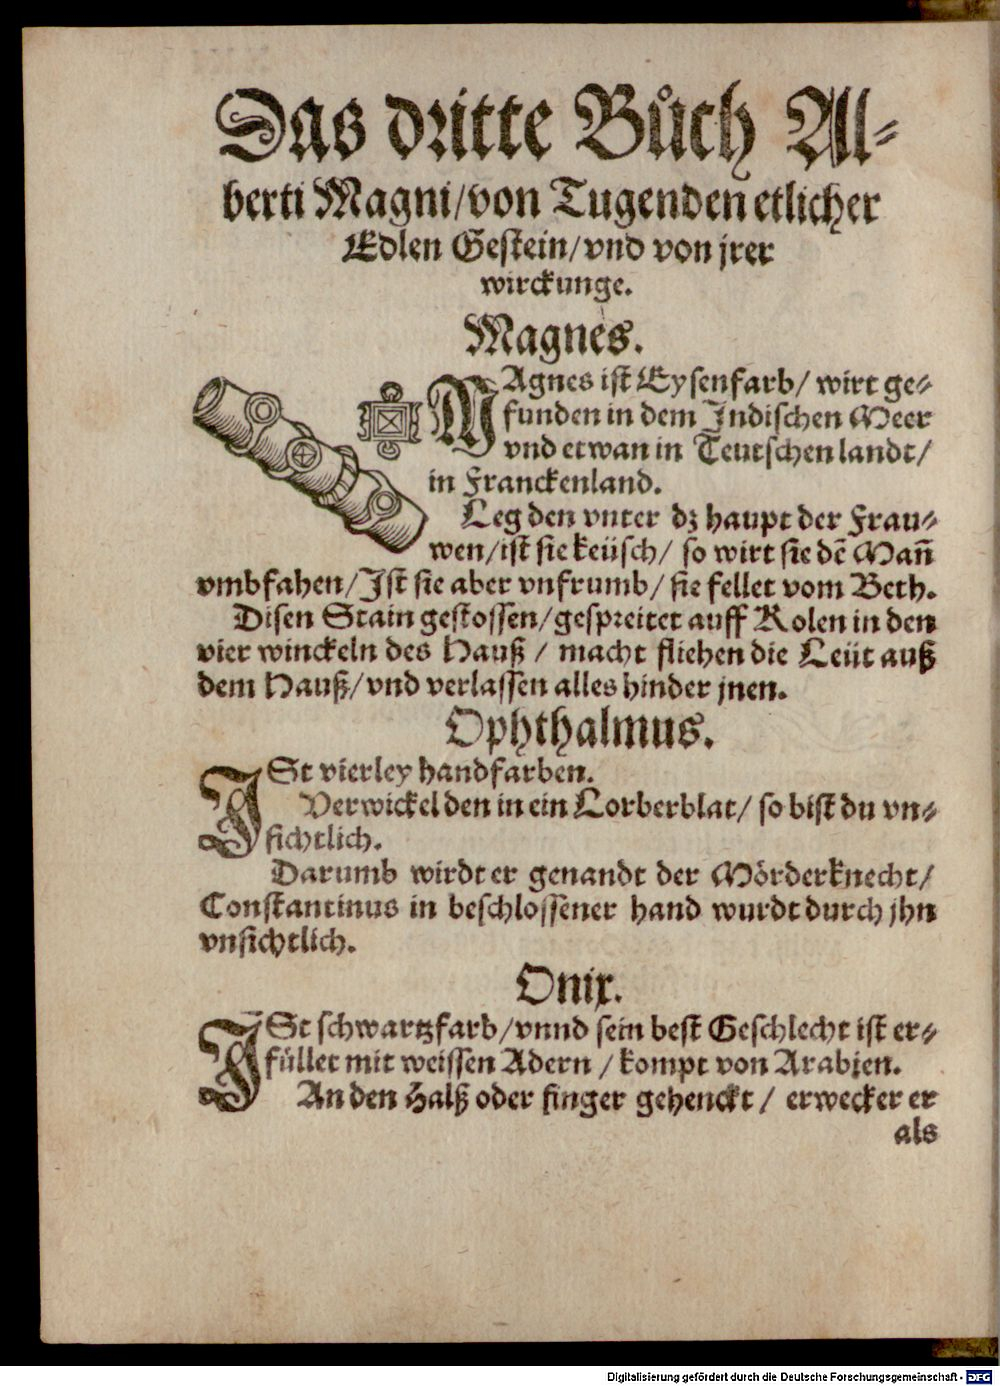 Das dritte Bůch Al-
berti Magni/von Tugenden etlicher
Edlen Gestein/vnd von jrer
wirckunge.
Magnes.
MAgnes ist Eysenfarb/ wirt ge-
funden in dem Indischen Meer
vnd etwan in Teutschen landt/
in Franckenland.
Leg den vnter dz haupt der Frau-
wen/ist sie keüsch/ so wirt sie dē Mañ
vmbfahen/Ist sie aber vnfrumb/ sie fellet vom Beth.
Disen Stain gestossen/gespreitet auff Kolen in den
vier winckeln des Hauß / macht fliehen die Leüt auß
dem Hauß/vnd verlassen alles hinder jnen.
Ophthalmus.
ISt vierley handfarben.
Verwickel den in ein Lorberblat/ so bist du vn-
sichtlich.
Darumb wirdt er genandt der Mörderknecht/
Constantinus in beschlossener hand wurdt durch jhn
vnsichtlich.
Onix.
ISt schwartzfarb/vnnd sein best Geschlecht ist er-
füllet mit weissen Adern / kompt von Arabien.
An den Halß oder finger gehenckt / erwecker er
als
Digitalisierung gefördert durch die Deutsche Forschungsgemeinschaft - DFG